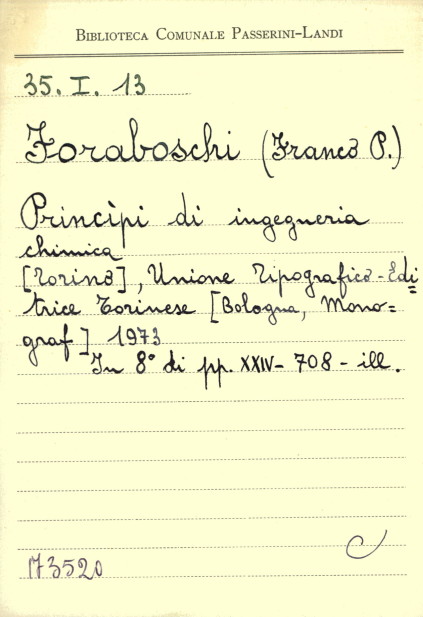 BIBLIOTECA COMUNALE PASSERINI-LANDI
35. I. 13
Foraboschi (Franco P.)
Princìpi di ingegneria
chimica
[Torino], Unione Tipografico-Edi=
trice Torinese [Bologna, Mono=
graf] 1973
In 8° di pp. XXIV-708-ill.
C
173520